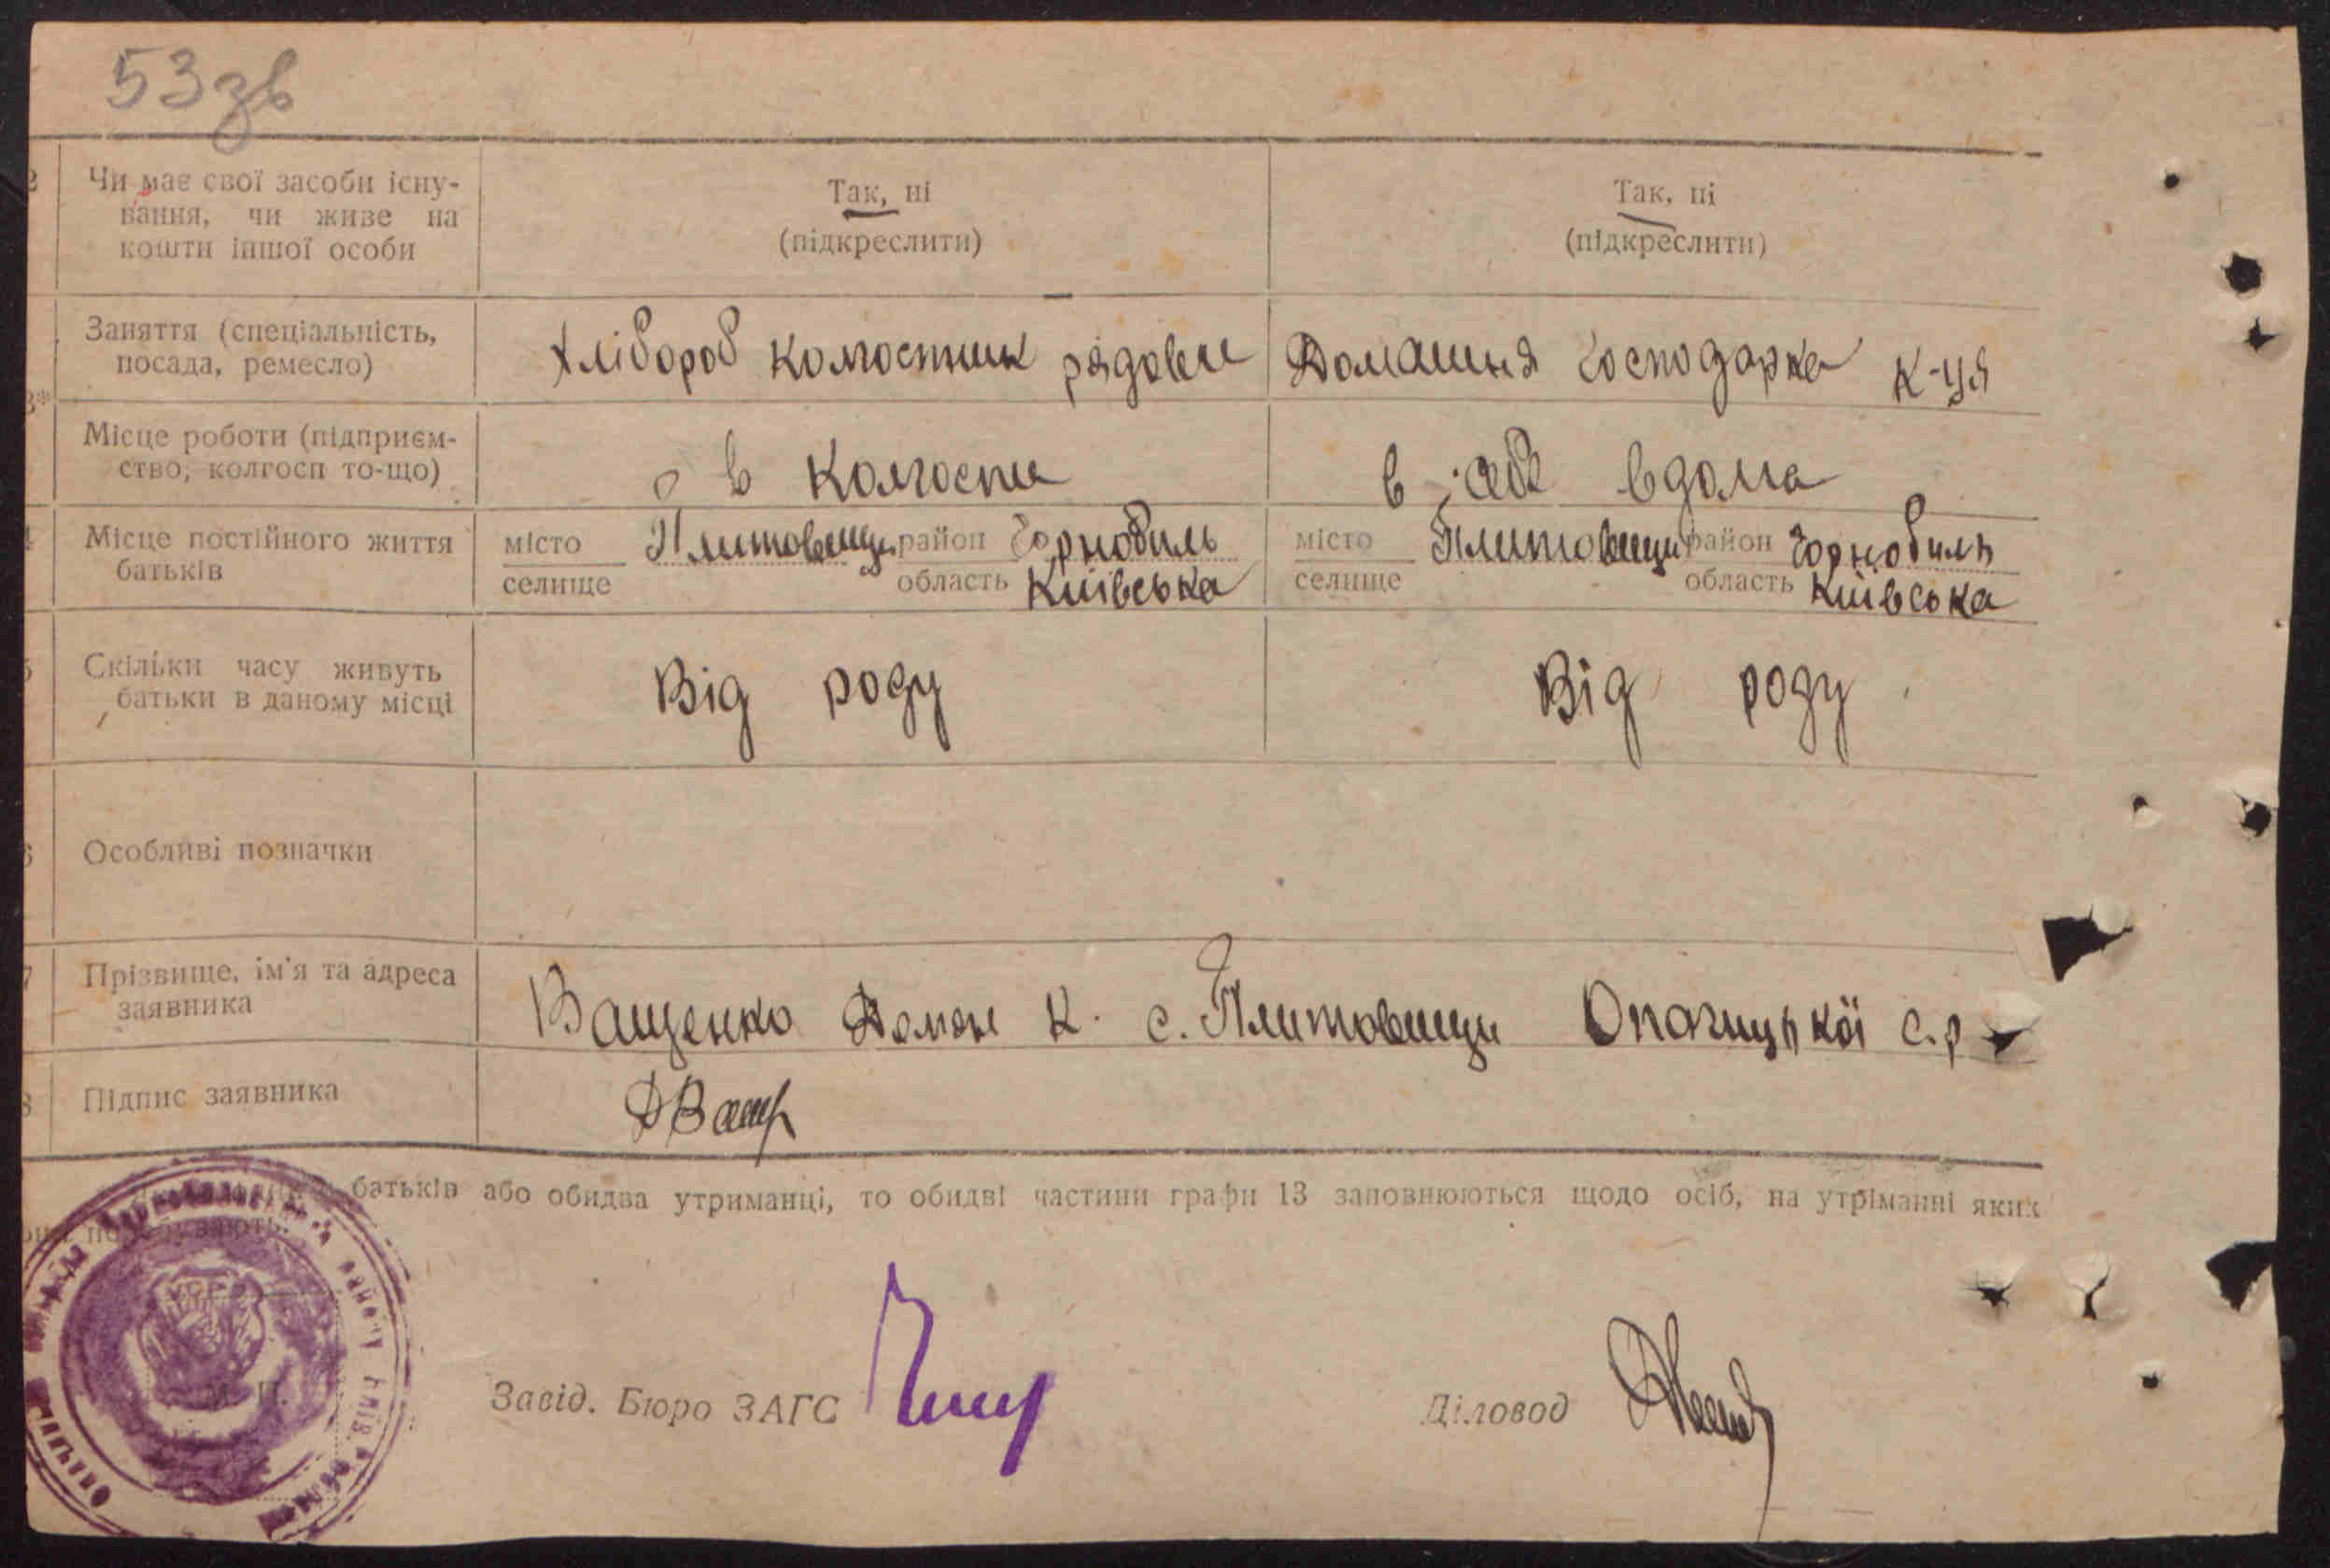 53зв
Чи має свої засоби існу-
вання, чи живе на
кошти іншої особи
Так, ні
(підкреслити)
Так, ні
(підкреслити)
Заняття (спеціальність,
посада, ремесло)
Хлібороб колгоспник рядовий
Домашня господарка к-ця
Місце роботи (підприєм-
ство, колгосп то-що)
в колгоспи
в себе вдома
Місце постійного життя
батьків
місто
селище
Плитовищи район Чорнобиль
область Київська
місто
селище
Плитовищи район Чорнобиль
область Київська
Скільки часу живуть
батьки в даному місці
Від роду
Від роду
Особливі позначки
Прізвище, ім'я та адреса
заявника
Ващенко К. с. Плитовищи Опачицької с.р
Підпис заявника
ДВащ
батьків або обидва утриманці, то обидві частини графи 13 заповнюються щодо осіб, на утріманні яких
перебувають.
УСРР
М. П.
Завід. Бюро ЗАГС
Діловод